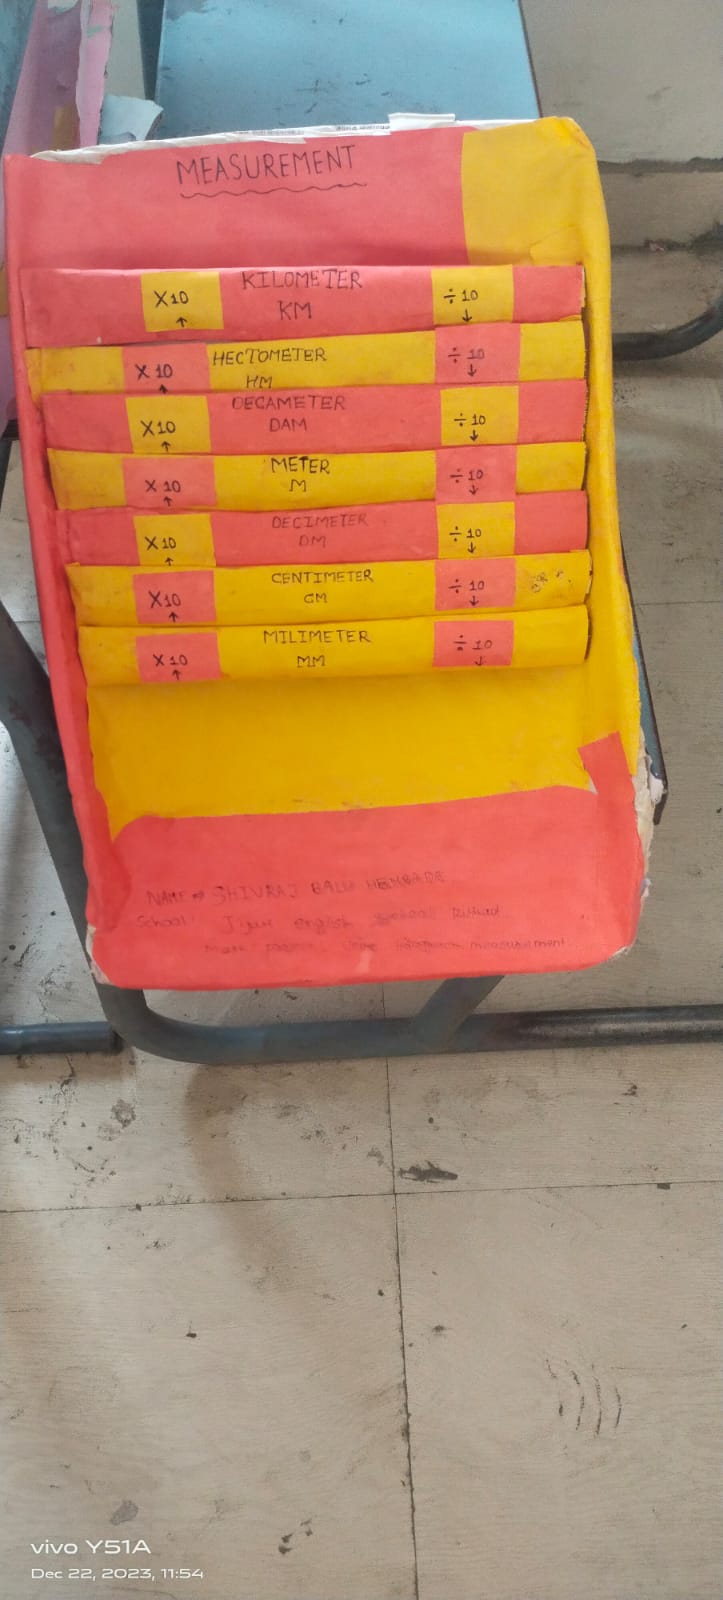 MEASUREMENT
X10 KILOMETER ÷10
↑ KM ↓
X10 HECTOMETER ÷10
↑ HM ↓
DECAMETER
X10 DAM ÷10
↑ ↓
METER
X10 M ÷10
↑ ↓
DECIMETER
X10 DM ÷10
↑ ↓
CENTIMETER
X10 CM ÷10
↑ ↓
MILIMETER
X10 MM ÷10
↑ ↓
NAME → SHIVRAJ BALU
School: english school
measurement
vivo Y51A
Dec 22, 2023, 11:54